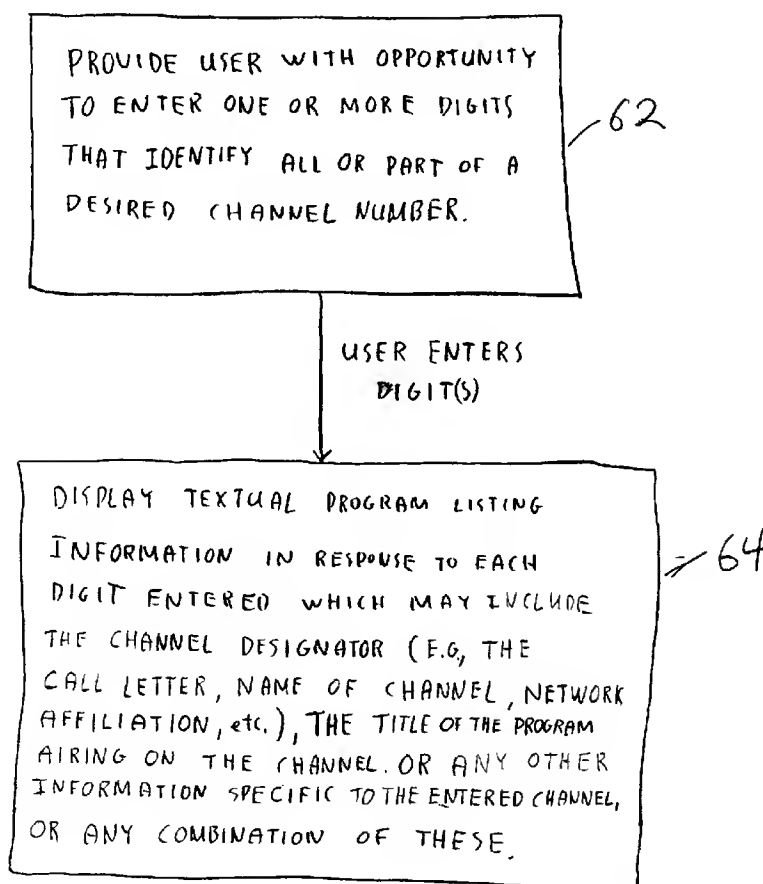 PROVIDE USER WITH OPPORTUNITY
TO ENTER ONE OR MORE DIGITS
THAT IDENTIFY ALL OR PART OF A
DESIRED CHANNEL NUMBER.
62
USER ENTERS
DIGIT(S)
DISPLAY TEXTUAL PROGRAM LISTING
INFORMATION IN RESPONSE TO EACH
DIGIT ENTERED WHICH MAY INCLUDE
THE CHANNEL DESIGNATOR (E.G., THE
CALL LETTER, NAME OF CHANNEL, NETWORK
AFFILIATION, etc.), THE TITLE OF THE PROGRAM
AIRING ON THE CHANNEL. OR ANY OTHER
INFORMATION SPECIFIC TO THE ENTERED CHANNEL,
OR ANY COMBINATION OF THESE.
64